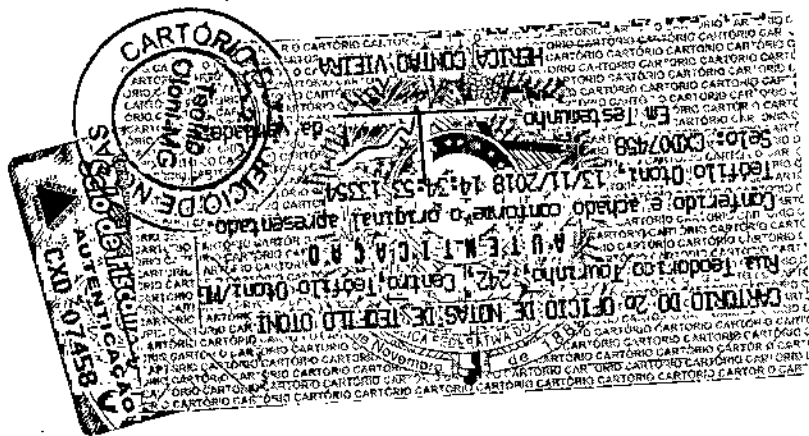 CARTORIO DO 2o OFICIO DE NOTAS DE TEOFILO OTONI
Rua Teodorico Tourinho, 242, Centro, Teofilo Otoni/MG
AUTENTICACAO
Conferido e achado conforme o original apresentado.
Teófilo Otoni, 13/11/2018 14:34:53 13354
Selo: CXD07458
Em Testemunho da verdade
HERICA CONTAO VIEIRA
CARTÓRIO DO 2º OFÍCIO DE NOTAS
Teófilo
Otoni-MG
AUTENTICAÇÃO
CXD 07458